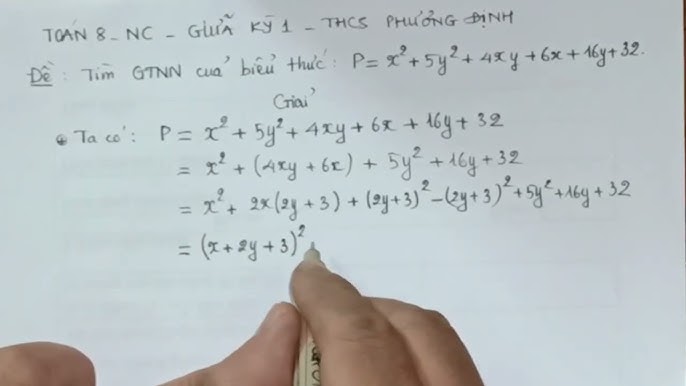 TOÁN 8 - NC - GIỮA KỲ 1 - THCS PHƯỜNG ĐỊNH
Đề: Tìm GTNN của biểu thức: P = x² + 5y² + 4xy + 6x + 16y + 32.
Giải
Ta có: P = x² + 5y² + 4xy + 6x + 16y + 32
= x² + (4xy + 6x) + 5y² + 16y + 32
= x² + 2x(2y + 3) + (2y+3)² - (2y+3)² + 5y² + 16y + 32
= (x + 2y + 3)²